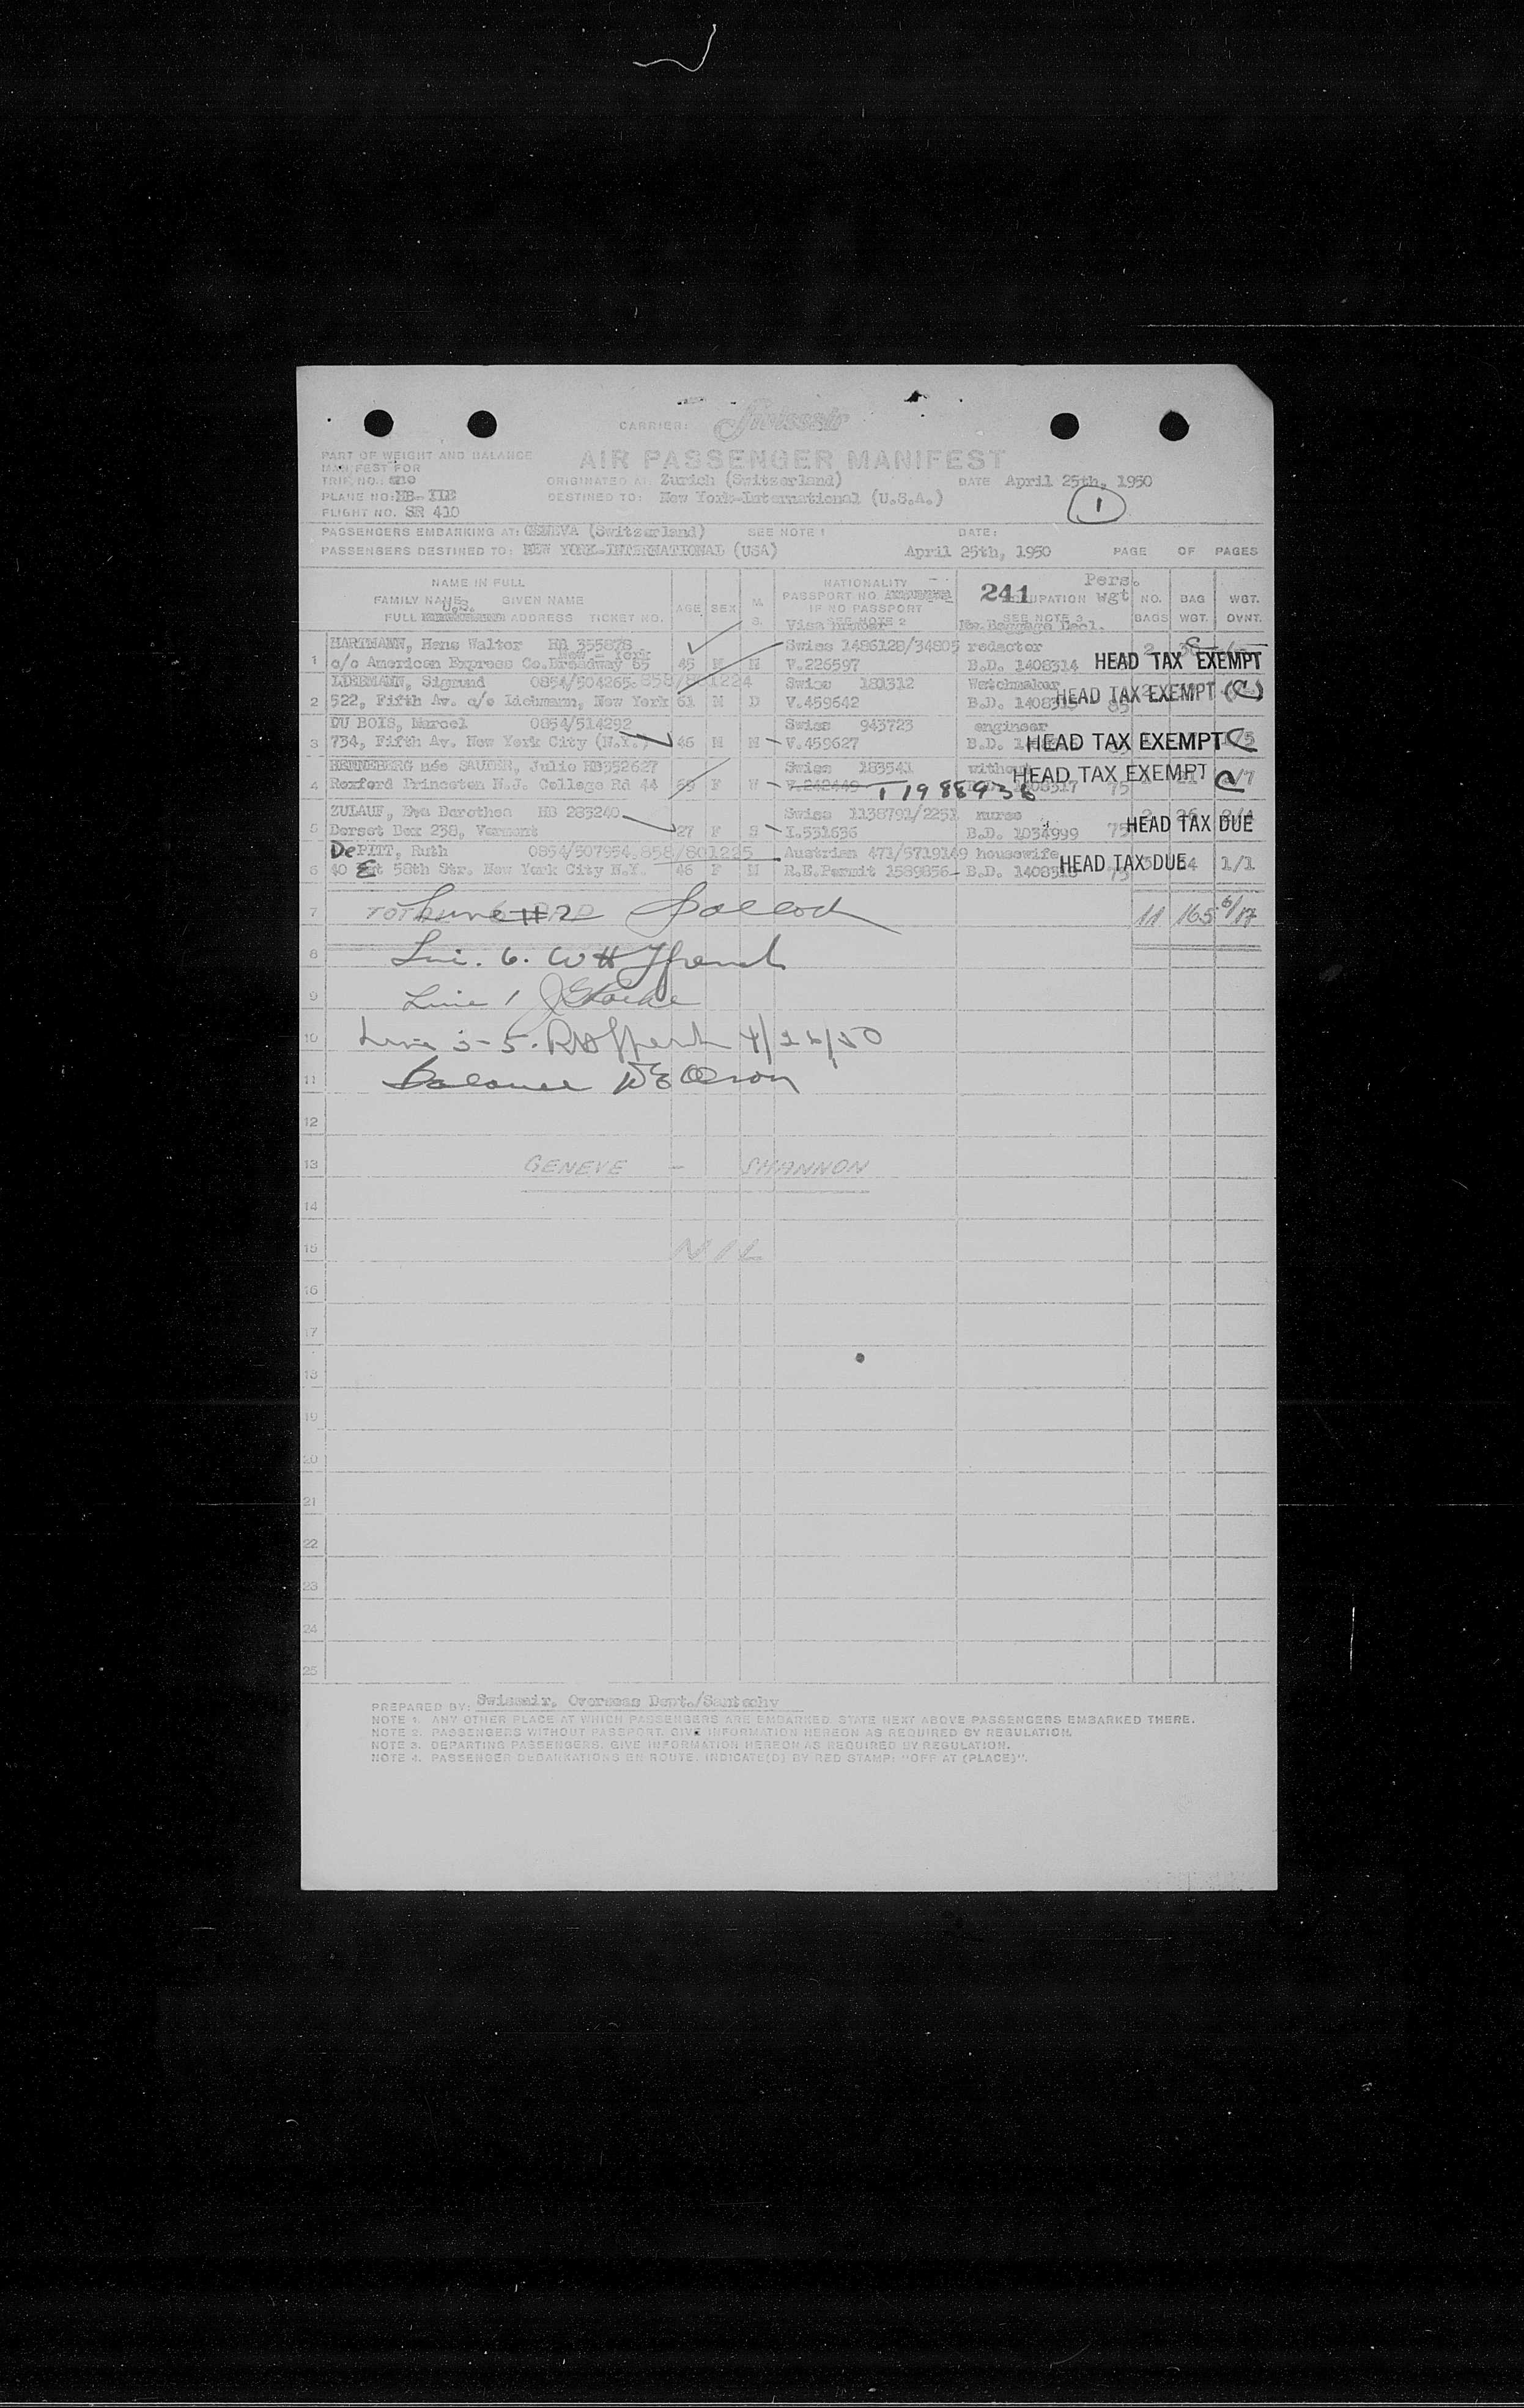 CARRIER: Swissair
PART OF WEIGHT AND BALANCE
MANIFEST FOR
AIR PASSENGER MANIFEST
TRIP NO.: 410 ORIGINATED AT: Zurich (Switzerland) DATE April 25th, 1950
PLANE NO: HB- DESTINED TO: New York-International (U.S.A.)
1
FLIGHT NO. SR 410
PASSENGERS EMBARKING AT: GENEVA (Switzerland) SEE NOTE 1 DATE:
PASSENGERS DESTINED TO: NEW YORK-INTERNATIONAL (USA) April 25th, 1950 PAGE OF PAGES
NAME IN FULL NATIONALITY Pers.
FAMILY NAME GIVEN NAME AGE SEX M. PASSPORT NO. 241 OCCUPATION Wgt NO. BAG WGT.
U.S. IF NO PASSPORT
FULL ADDRESS TICKET NO. S. SEE NOTE 2 SEE NOTE 3 BAGS WGT. OVNT.
Visa number No. Baggage Decl.
HARTMANN, Hans Walter HB 355878 Swiss 1486128/34805 redactor 2
New - York
1 c/o American Express Co. Broadway 65 45 M M V.226597 B.D. 1408314 HEAD TAX EXEMPT
Sigmund 0854/504265 858/801224 Swiss 181312 Watchmaker
2 522, Fifth Av. c/o New York 61 M D V.459642 B.D. 85 HEAD TAX EXEMPT (C)
DU BOIS, Marcel 0854/514292 Swiss 943723 engineer
3 734, Fifth Av. New York City (N.Y.) 46 M M V.459627 B.D. HEAD TAX EXEMPT C
HENNEBERG née SAUTER, Julie HB352627 Swiss 183541 without
4 Roxford Princeton N.J. College Rd 44 69 F W V.242449 75 HEAD TAX EXEMPT C
ZULAUF, Eva Dorothea HB 283240 Swiss 1138791/2251 nurse
5 Dorset Box 238, Vermont 27 F S I.531636 B.D. 1034999 75 HEAD TAX DUE
De PITT, Ruth 0854/507954 858/801225 Austrian 471/5719149 housewife
6 40 E 58th Str. New York City N.Y. 46 F M R.E.Permit 1589856 B.D. 1408318 75 HEAD TAX DUE 1/1
7 Line #2 11 165 6/17
8 6. WH
9 Line 1
10 Line 3-5.
11 Balance
12
13 GENEVE - SHANNON
14
15 NIL
16
17
18
19
20
21
22
23
24
25
PREPARED BY: Swissair, Overseas Dept./Santschy
NOTE 1. ANY OTHER PLACE AT WHICH PASSENGERS ARE EMBARKED STATE NEXT ABOVE PASSENGERS EMBARKED THERE.
NOTE 2. PASSENGERS WITHOUT PASSPORT. GIVE INFORMATION HEREON AS REQUIRED BY REGULATION.
NOTE 3. DEPARTING PASSENGERS. GIVE INFORMATION HEREON AS REQUIRED BY REGULATION.
NOTE 4. PASSENGER DEBARKATIONS EN ROUTE. INDICATE(D) BY RED STAMP: "OFF AT (PLACE)".